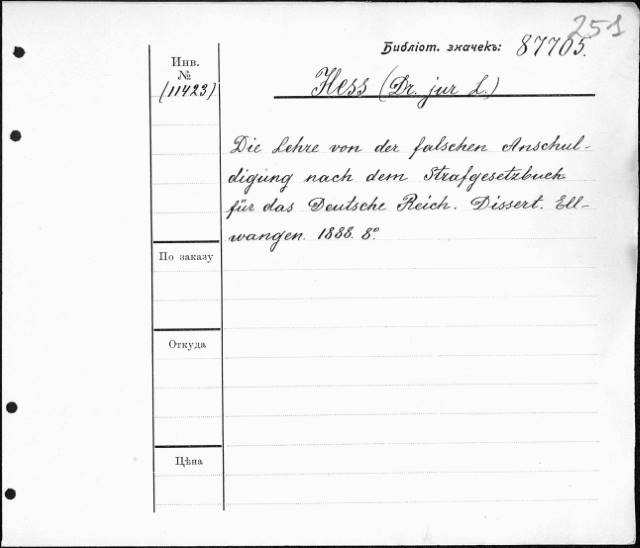 251
Библіот. значекъ: 87705.
Инв.
№
(11423)
Hess (Dr. jur L.)
Die Lehre von der falschen Anschul-
digung nach dem Strafgesetzbuch
für das Deutsche Reich. Dissert. Ell-
wangen. 1888. 8°.
По заказу
Откуда
Цѣна